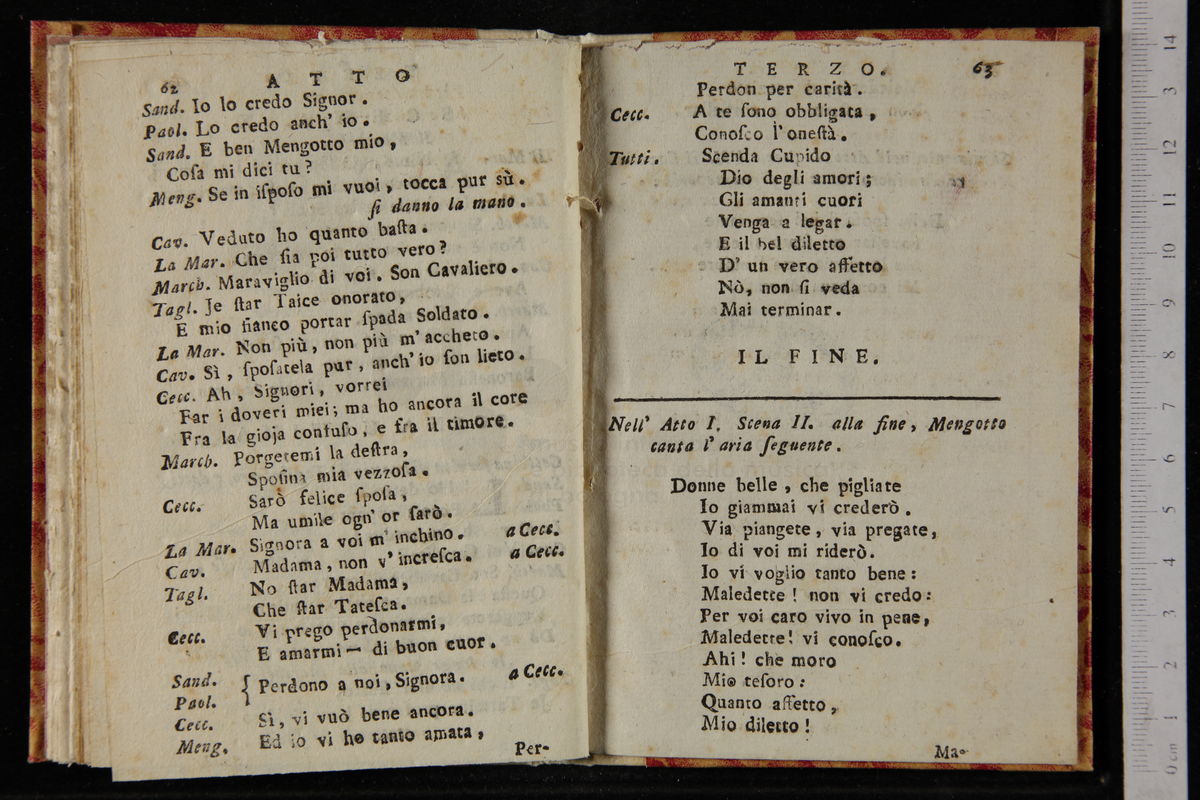 62 A T T O
Sand. Io lo credo Signor.
Paol. Lo credo anch' io.
Sand. E ben Mengotto mio,
Coſa mi dici tu?
Meng. Se in iſpoſo mi vuoi, tocca pur sù.
ſi danno la mano.
Cav. Veduto ho quanto baſta.
La Mar. Che ſia poi tutto vero?
March. Maraviglio di voi. Son Cavaliero.
Tagl. Je ſtar Taice onorato,
E mio fianco portar ſpada Soldato.
La Mar. Non più, non più m' accheto.
Cav. Sì, ſpoſatela pur, anch' io ſon lieto.
Cecc. Ah, Signori, vorrei
Far i doveri miei; ma ho ancora il core
Fra la gioja confuſo, e fra il timore.
March. Porgetemi la deſtra,
Spoſina mia vezzoſa.
Cecc. Sarò felice ſpoſa,
Ma umile ogn' or ſarò.
La Mar. Signora a voi m' inchino. a Cecc.
Cav. Madama, non v' increſca. a Cecc.
Tagl. No ſtar Madama,
Che ſtar Tateſca.
Cecc. Vi prego perdonarmi,
E amarmi di buon cuor.
Sand.
Paol. { Perdono a noi, Signora. a Cecc.
Cecc. Sì, vi vuò bene ancora.
Meng. Ed io vi ho tanto amata,
Per-
T E R Z O. 63
Perdon per carità.
Cecc. A te ſono obbligata,
Conoſco l' oneſtà.
Tutti. Scenda Cupido
Dio degli amori;
Gli amanti cuori
Venga a legar.
E il bel diletto
D' un vero affetto
Nò, non ſi veda
Mai terminar.
I L F I N E.
Nell' Atto I. Scena II. alla fine, Mengotto
canta l' aria ſeguente.
Donne belle, che pigliate
Io giammai vi crederò.
Via piangete, via pregate,
Io di voi mi riderò.
Io vi voglio tanto bene:
Maledette! non vi credo:
Per voi caro vivo in pene,
Maledette! vi conoſco.
Ahi! che moro
Mio teſoro:
Quanto affetto,
Mio diletto!
Ma-
0 cm 1 2 3 4 5 6 7 8 9 10 11 12 3 14